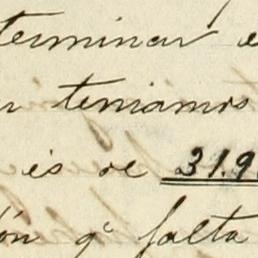 terminar e
r teniamos
es de 31.9
ón q.e falta